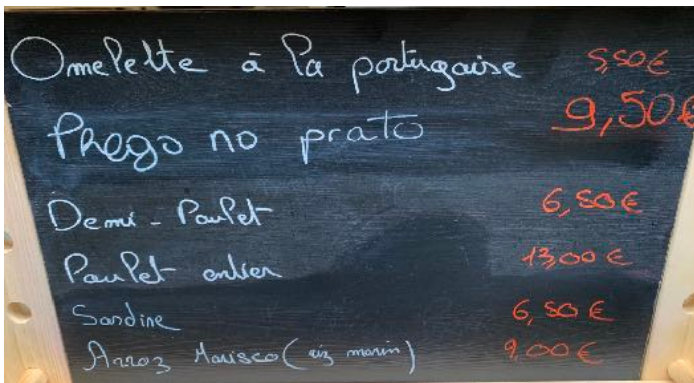 Omelette à la portugaise 5,50€
Prego no prato 9,50€
Demi-Poulet 6,50€
Poulet entier 13,00€
Sardine 6,50€
Arroz Marisco (riz marin) 9,00€